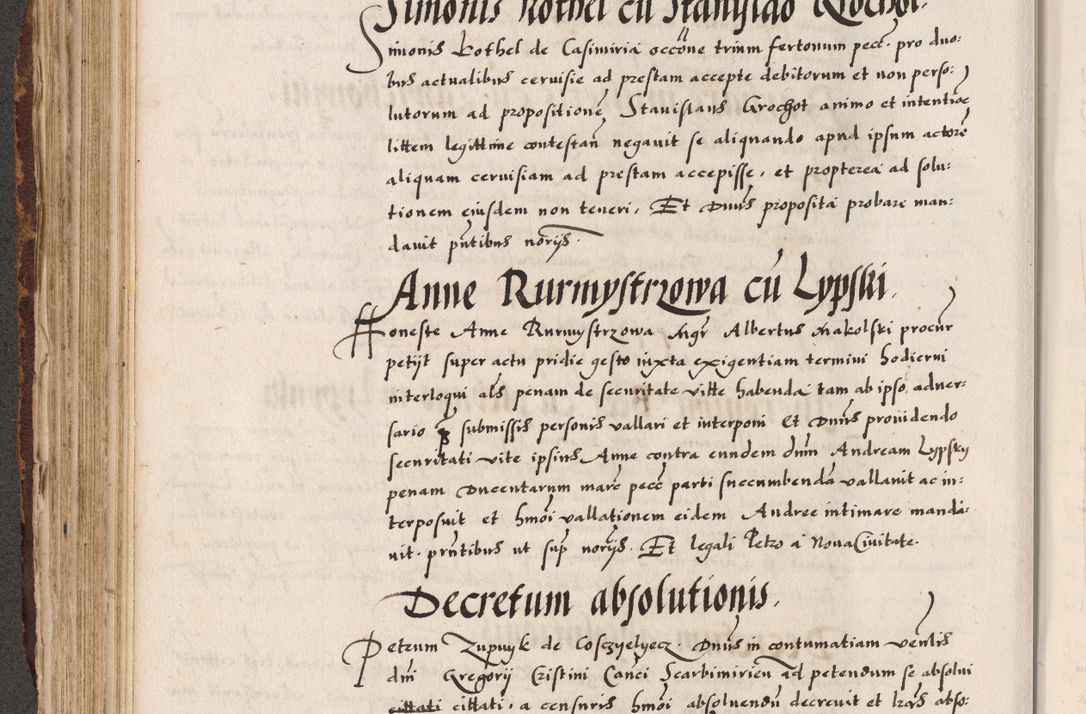 Simonis Kothel cū Stanislao Grochot.
Simonis Kothel de Casimiria occōne trium fertonum pecc. pro duo:
bus actualibus ceruisie ad prestam accepte debitorum et non perso:
lutorum ad propositionē, Stanislaus Grochot animo et intentiōe
littem legittime contestan̄ negauit se aliquando apud ipsum actorē
aliquam ceruisiam ad prestam accepisse, et propterea ad solu:
tionem eiusdem non teneri, Et Dnūs proposita probare man:
dauit pn̄tibus norijs.
Anne Rurmystrzowa cū Lypski.
Honeste Anne Rurmystrzowa Mgr̄ Albertus Makolski procur̄
petijt super actu pridie gesto iuxta exigentiam termini hodierni
interloqui als penam de securitate vitte habenda tam ab ipso aduer:
sario ꝙ submissis personis vallari et interponi Et Dnūs prouidendo
securitati vite ipsius Anne contra eundem dnm̄ Andream Lypsky
penam Ducentarum marc̄ pecc̄ parti succumbenda vallauit ac in:
terposuit et hmōi vallationem eidem Andree intimare manda:
uit. pn̄tibus ut sup̄ norijs. Et legali Petro a Noua Ciuitate.
Decretum absolutionis.
Petrum Zupnyk de Cosczyelyecz. Dnūs in contumatiam ven̄lis
dnī Gregorij Cristini Canci Scarbimirien̄ ad petendum se absolui
cittati, a censuris hmōi absoluendū decreuit et lrās abso: